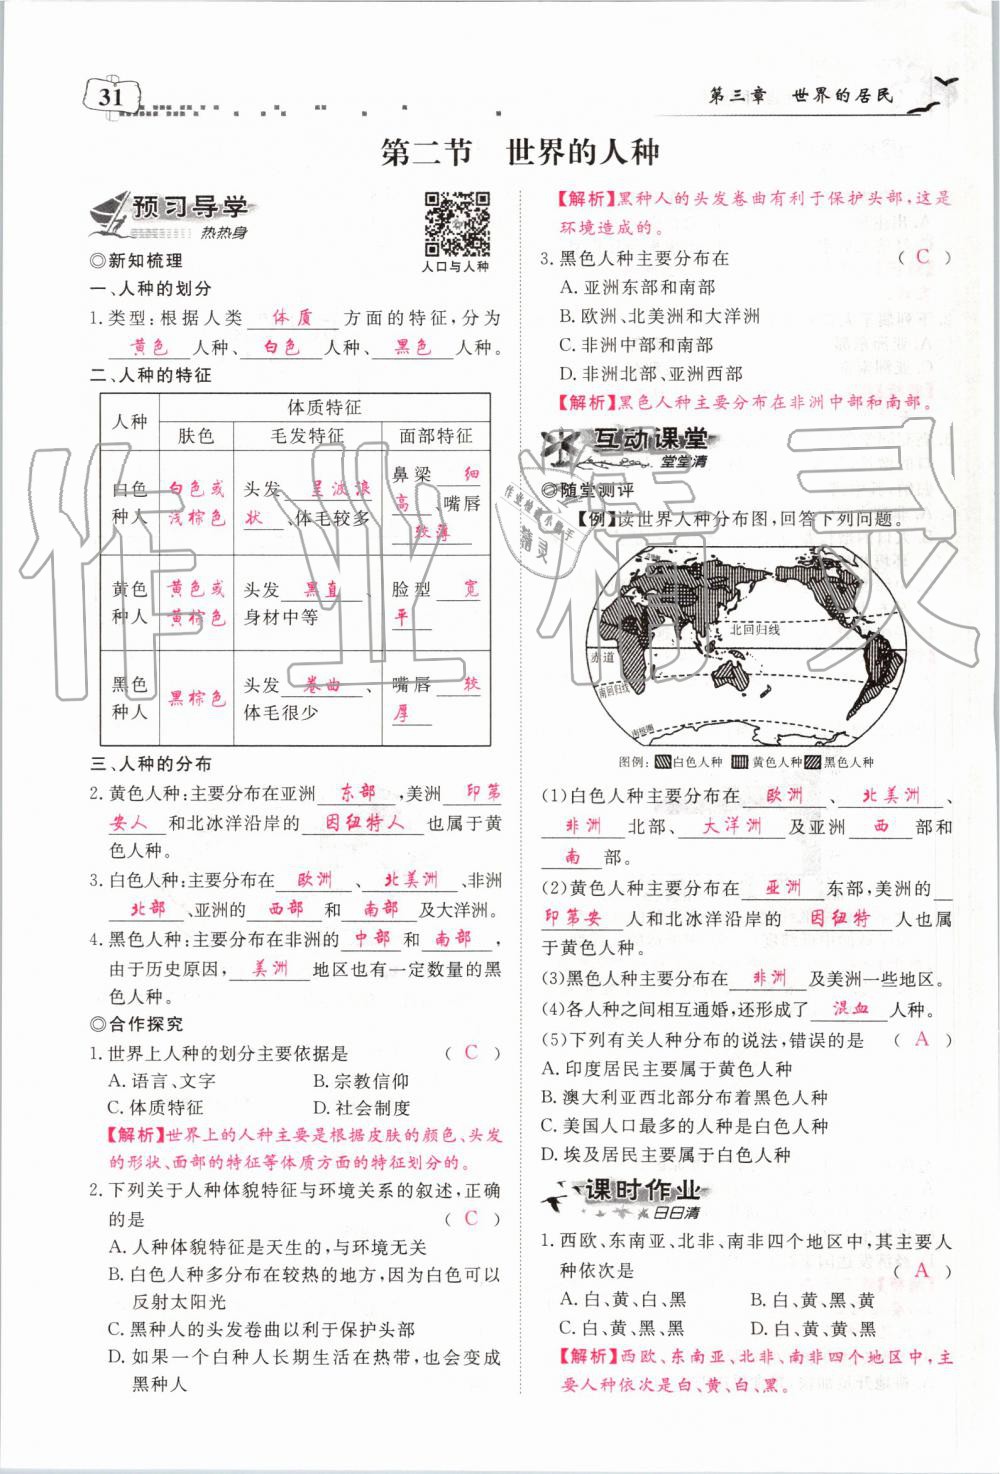 31
第三章 世界的居民
第二节 世界的人种
预习导学
热热身
人口与人种
◎新知梳理
一、人种的划分
1. 类型:根据人类 体质 方面的特征,分为
黄色 人种、 白色 人种、 黑色 人种。
二、人种的特征
人种 体质特征
肤色 毛发特征 面部特征
白色种人 白色或浅棕色 头发 呈波浪状 、体毛较多 鼻梁 细高 、嘴唇 较薄
黄色种人 黄色或黄棕色 头发 黑直 、身材中等 脸型 宽平
黑色种人 黑棕色 头发 卷曲 、体毛很少 嘴唇 较厚
三、人种的分布
2. 黄色人种:主要分布在亚洲 东部 ,美洲 印第
安人 和北冰洋沿岸的 因纽特人 也属于黄
色人种。
3. 白色人种:主要分布在 欧洲 、 北美洲 、非洲
北部 、亚洲的 西部 和 南部 及大洋洲。
4. 黑色人种:主要分布在非洲的 中部 和 南部 ,
由于历史原因, 美洲 地区也有一定数量的黑
色人种。
◎合作探究
1. 世界上人种的划分主要依据是 ( C )
A. 语言、文字 B. 宗教信仰
C. 体质特征 D. 社会制度
【解析】世界上的人种主要是根据皮肤的颜色、头发
的形状、面部的特征等体质方面的特征划分的。
2. 下列关于人种体貌特征与环境关系的叙述,正确
的是 ( C )
A. 人种体貌特征是天生的,与环境无关
B. 白色人种多分布在较热的地方,因为白色可以
反射太阳光
C. 黑种人的头发卷曲以利于保护头部
D. 如果一个白种人长期生活在热带,也会变成
黑种人
【解析】黑种人的头发卷曲有利于保护头部,这是
环境造成的。
3. 黑色人种主要分布在 ( C )
A. 亚洲东部和南部
B. 欧洲、北美洲和大洋洲
C. 非洲中部和南部
D. 非洲北部、亚洲西部
【解析】黑色人种主要分布在非洲中部和南部。
互动课堂
堂堂清
◎随堂测评
【例】读世界人种分布图,回答下列问题。
北回归线
赤道
南回归线
南极圈
图例: 白色人种 黄色人种 黑色人种
(1)白色人种主要分布在 欧洲 、 北美洲 、
非洲 北部、 大洋洲 及亚洲 西 部和
南 部。
(2)黄色人种主要分布在 亚洲 东部,美洲的
印第安 人和北冰洋沿岸的 因纽特 人也属
于黄色人种。
(3)黑色人种主要分布在 非洲 及美洲一些地区。
(4)各人种之间相互通婚,还形成了 混血 人种。
(5)下列有关人种分布的说法,错误的是 ( A )
A. 印度居民主要属于黄色人种
B. 澳大利亚西北部分布着黑色人种
C. 美国人口最多的人种是白色人种
D. 埃及居民主要属于白色人种
课时作业
日日清
1. 西欧、东南亚、北非、南非四个地区中,其主要人
种依次是 ( A )
A. 白、黄、白、黑 B. 白、黄、黑、黑
C. 白、白、黑、黑 D. 白、黄、黄、黑
【解析】西欧、东南亚、北非、南非四个地区中,主
要人种依次是白、黄、白、黑。
作业精灵